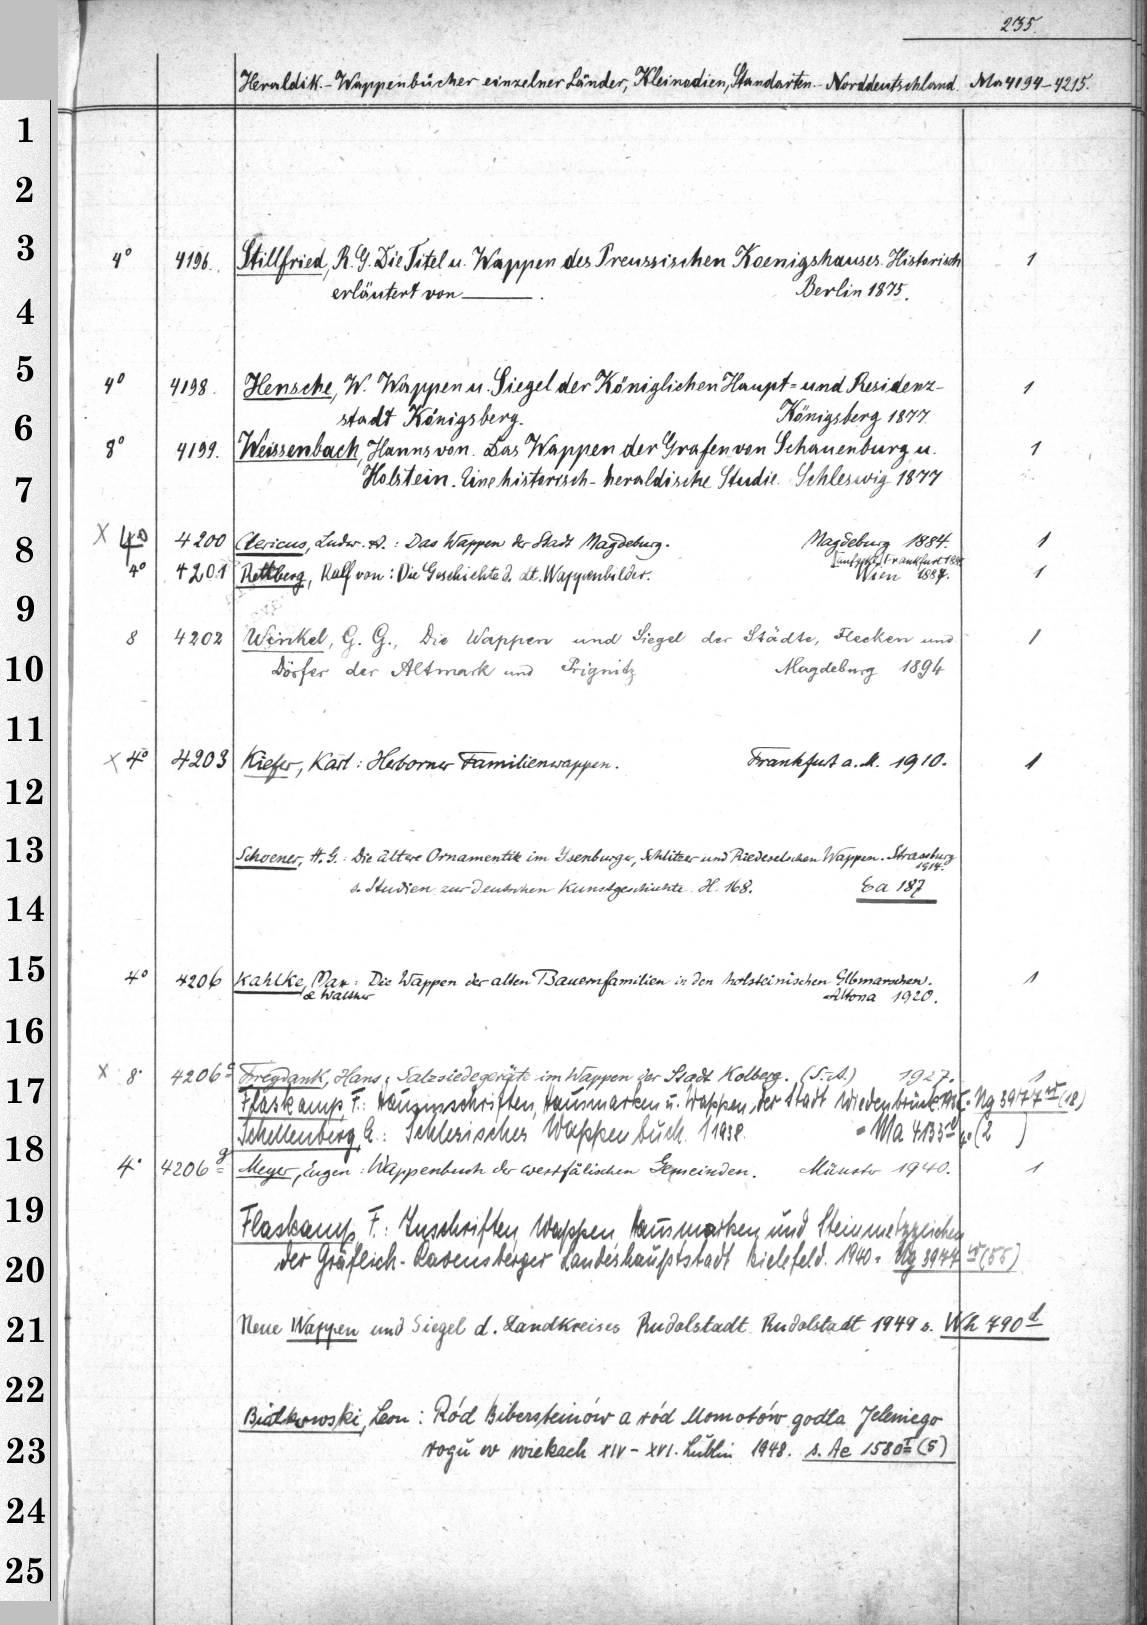 235.
Heraldik.- Wappenbücher einzelner Länder, Kleinodien, Standarten.- Norddeutschland. Ma 4194-4215.
1
2
3
4° 4196. Stillfried, R. G. Die Titel u. Wappen des Preussischen Koenigshauses. Historisch 1
erläutert von ——. Berlin 1875.
4
5
4° 4198. Hensche, W. Wappen u. Siegel der Königlichen Haupt= und Residenz- 1
stadt Königsberg. Königsberg 1877.
6
8° 4199. Weissenbach, Hanns von. Das Wappen der Grafen von Schauenburg u. 1
Holstein. Eine historisch-heraldische Studie. Schleswig 1877
7
X 4° 4200 Clericus, Ludw. A.: Das Wappen der Stadt Magdeburg. Magdeburg 1884. 1
8
4° 4201 Rettberg, Ralf von: Die Geschichte d. dt. Wappenbilder. Wien 1887. 1
9
8 4202 Winkel, G. G., Die Wappen und Siegel der Städte, Flecken und 1
Dörfer der Altmark und Prignitz Magdeburg 1894
10
11
X 4° 4203 Kiefer, Karl: Herborner Familienwappen. Frankfurt a. M. 1910. 1
12
13
Schoener, H. G.: Die ältere Ornamentik im Ysenburger, Schlitzer und Riedeselschen Wappen. Strassburg
1914.
s. Studien zur Deutschen Kunstgeschichte. H. 168. Ea 187
14
15
4° 4206 Kahlke, Max: Die Wappen der alten Bauernfamilien in den holsteinischen Elbmarschen. 1
& Walther Altona 1920.
16
X 8° 4206a Freydank, Hans: Salzsiedegeräte im Wappen der Stadt Kolberg. (S.-A.) 1927. 1
17
Flaskamp, F.: Hausinschriften, Hausmarken u. Wappen der Stadt Wiedenbrück. Ng 3977 (18)
Schellenberg, A.: Schlesisches Wappenbuch. 1 1938. = Ma 4133 4° (2 )
18
4° 4206g Meyer, Eugen: Wappenbuch der westfälischen Gemeinden. Münster 1940. 1
19
Flaskamp, F.: Inschriften, Wappen, Hausmarken und Steinmetzzeichen
der Gräflich-Ravensberger Landeshauptstadt Bielefeld. 1940 = Ng 3977 (55)
20
21
Neue Wappen und Siegel d. Landkreises Rudolstadt. Rudolstadt 1949 s. Wh 790d
22
Białkowski, Leon: Ród Bibersteinów a ród Momotów godła Jeleniego
rogu w wiekach XIV-XVI. Lublin 1948. s. Ae 1580 (5)
23
24
25